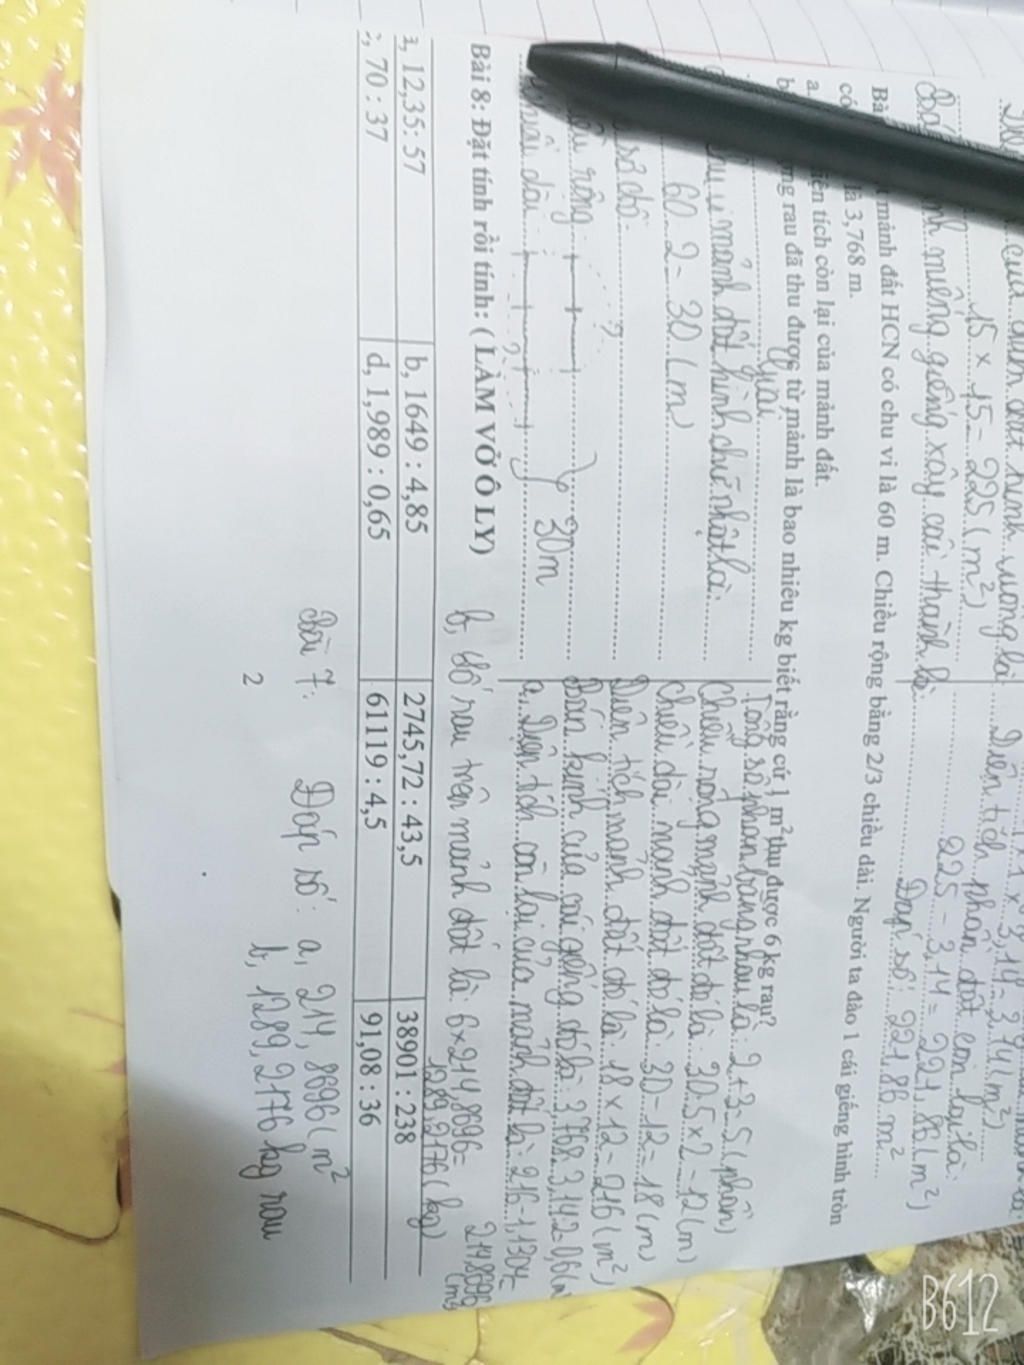 của mảnh đất hình vuông là:
15 x 15 = 225 (m²)
giếng xây cái thành là:
1 x 1 x 3,14 = 3,14 (m²)
Diện tích phần đất còn lại là:
225 - 3,14 = 221,86 (m²)
Đáp số: 221,86 m²
mảnh đất HCN có chu vi là 60 m. Chiều rộng bằng 2/3 chiều dài. Người ta đào 1 cái giếng hình tròn
có là 3,768 m.
a. tích còn lại của mảnh đất.
b rau đã thu được từ mảnh là bao nhiêu kg biết rằng cứ 1 m² thu được 6 kg rau?
Giải
mảnh đất hình chữ nhật là:
60 : 2 = 30 (m)
sơ đồ:
rộng:
?
30m
dài:
?
Tổng số phần bằng nhau là: 2 + 3 = 5 (phần)
Chiều rộng mảnh đất đó là: 30 : 5 x 2 = 12 (m)
Chiều dài mảnh đất đó là: 30 - 12 = 18 (m)
Diện tích mảnh đất đó là: 18 x 12 = 216 (m²)
Bán kính của cái giếng đó là: 3,768 : 3,14 : 2 = 0,6 (m)
a, Diện tích còn lại của mảnh đất là: 216 - 1,1304 =
214,8696 (m²)
Bài 8: Đặt tính rồi tính: ( LÀM VỞ Ô LY)
b, Số rau trên mảnh đất là: 6 x 214,8696 =
1289,2176 (kg)
12,35: 57 b, 1649 : 4,85 2745,72 : 43,5 38901 : 238
70 : 37 d, 1,989 : 0,65 61119 : 4,5 91,08 : 36
Bài 7: Đáp số: a, 214,8696 (m²
b, 1289,2176 kg rau
2
B612